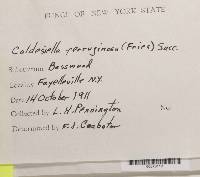 FUNGI OF NEW YORK STATE
Caldesiella ferruginosa (Fries) Sacc.
Substratum Basswood
Locality Fayetteville N.Y.
Date 14 October 1911
Collected by L. H. Pennington
No.
Determined by